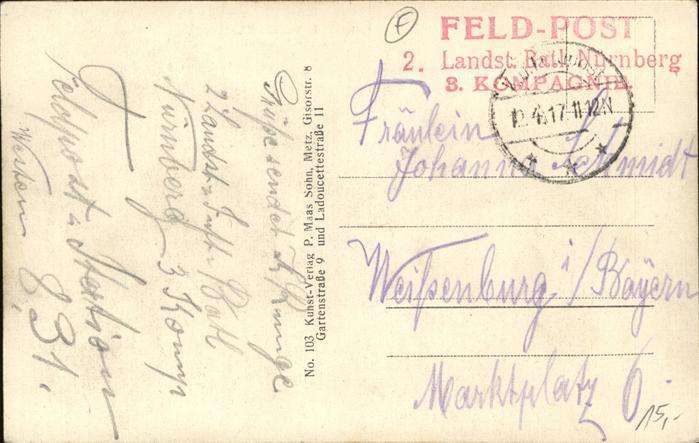 F
FELD-POST
2. Landst. Batl. Nürnberg
3. KOMPAGNIE.
12.4.17.11-12N
Fräulein
Johanna Schmidt
Weißenburg i/Bayern
Marktplatz 6.
15,-
No. 103 Kunst-Verlag P. Maas Sohn, Metz, Gisorstr. 8
Gartenstraße 9 und Ladoucettestraße 11
Grüße sendet
2 Landst. Inft. Batl
Nürnberg 3 Komp
Feldpost Station
Westen 831.